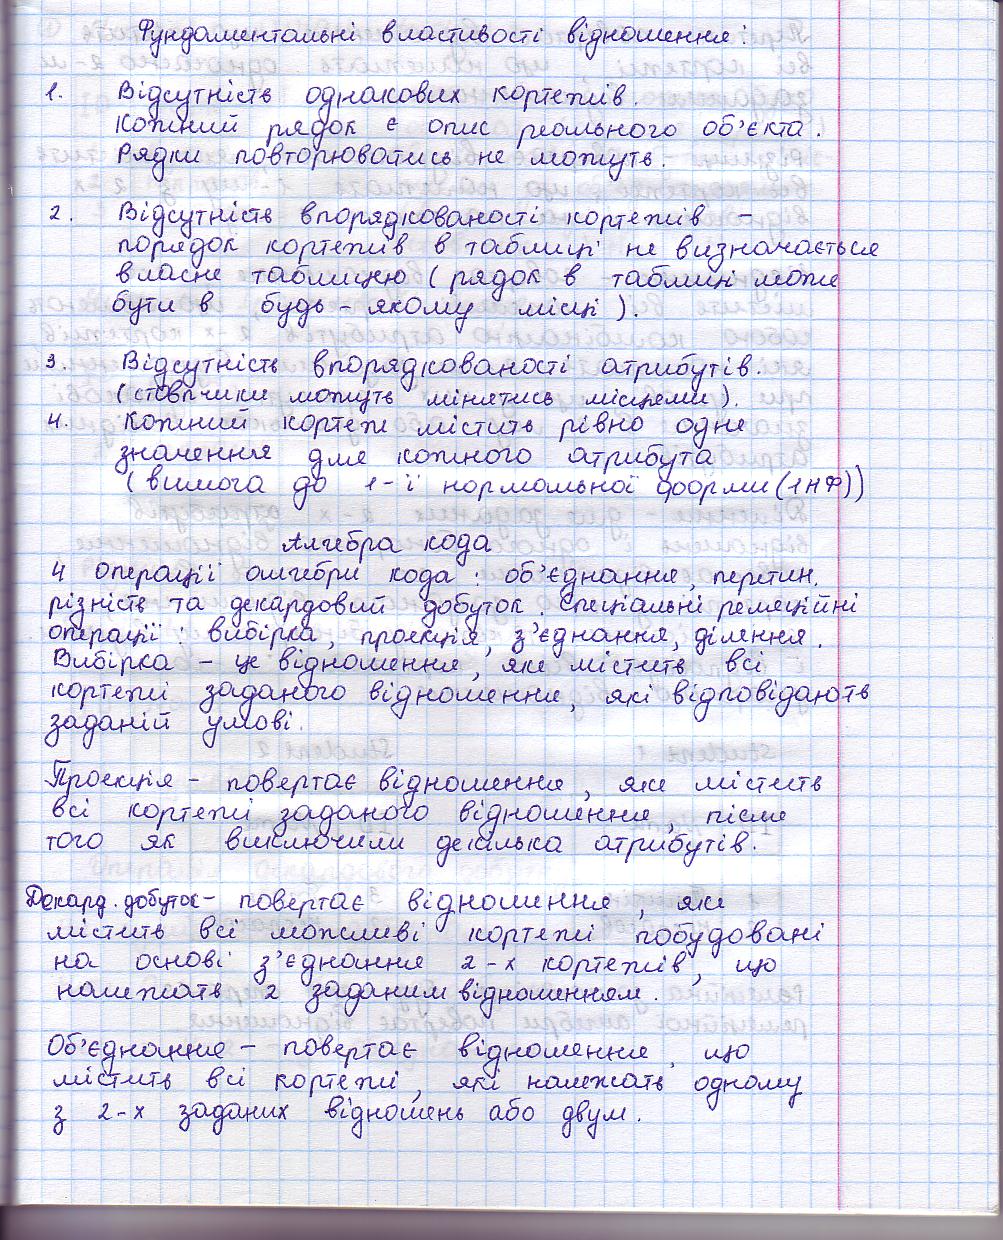 Фундаментальні властивості відношення:
1. Відсутність однакових кортежів.
Кожний рядок є опис реального об'єкта.
Рядки повторюватись не можуть.
2. Відсутність впорядкованості кортежів –
порядок кортежів в таблиці не визначається
власне таблицею (рядок в таблиці може
бути в будь-якому місці).
3. Відсутність впорядкованості атрибутів.
(стовпчики можуть мінятись місцями).
4. Кожний кортеж містить рівно одне
значення для кожного атрибута
(вимога до 1-ї нормальної форми (1НФ))
Алгебра кода
4 операції алгебри кода: об'єднання, перетин,
різність та декардовий добуток. Спеціальні реляційні
операції: вибірка, проекція, з'єднання, ділення.
Вибірка – це відношення, яке містить всі
кортежі заданого відношення, які відповідають
заданій умові.
Проекція – повертає відношення, яке містить
всі кортежі заданого відношення, після
того як виключили декілька атрибутів.
Декард. добуток – повертає відношення, яке
містить всі можливі кортежі побудовані
на основі з'єднання 2-х кортежів, що
належать 2 заданим відношенням.
Об'єднання – повертає відношення, що
містить всі кортежі, які належать одному
з 2-х заданих відношень або двум.